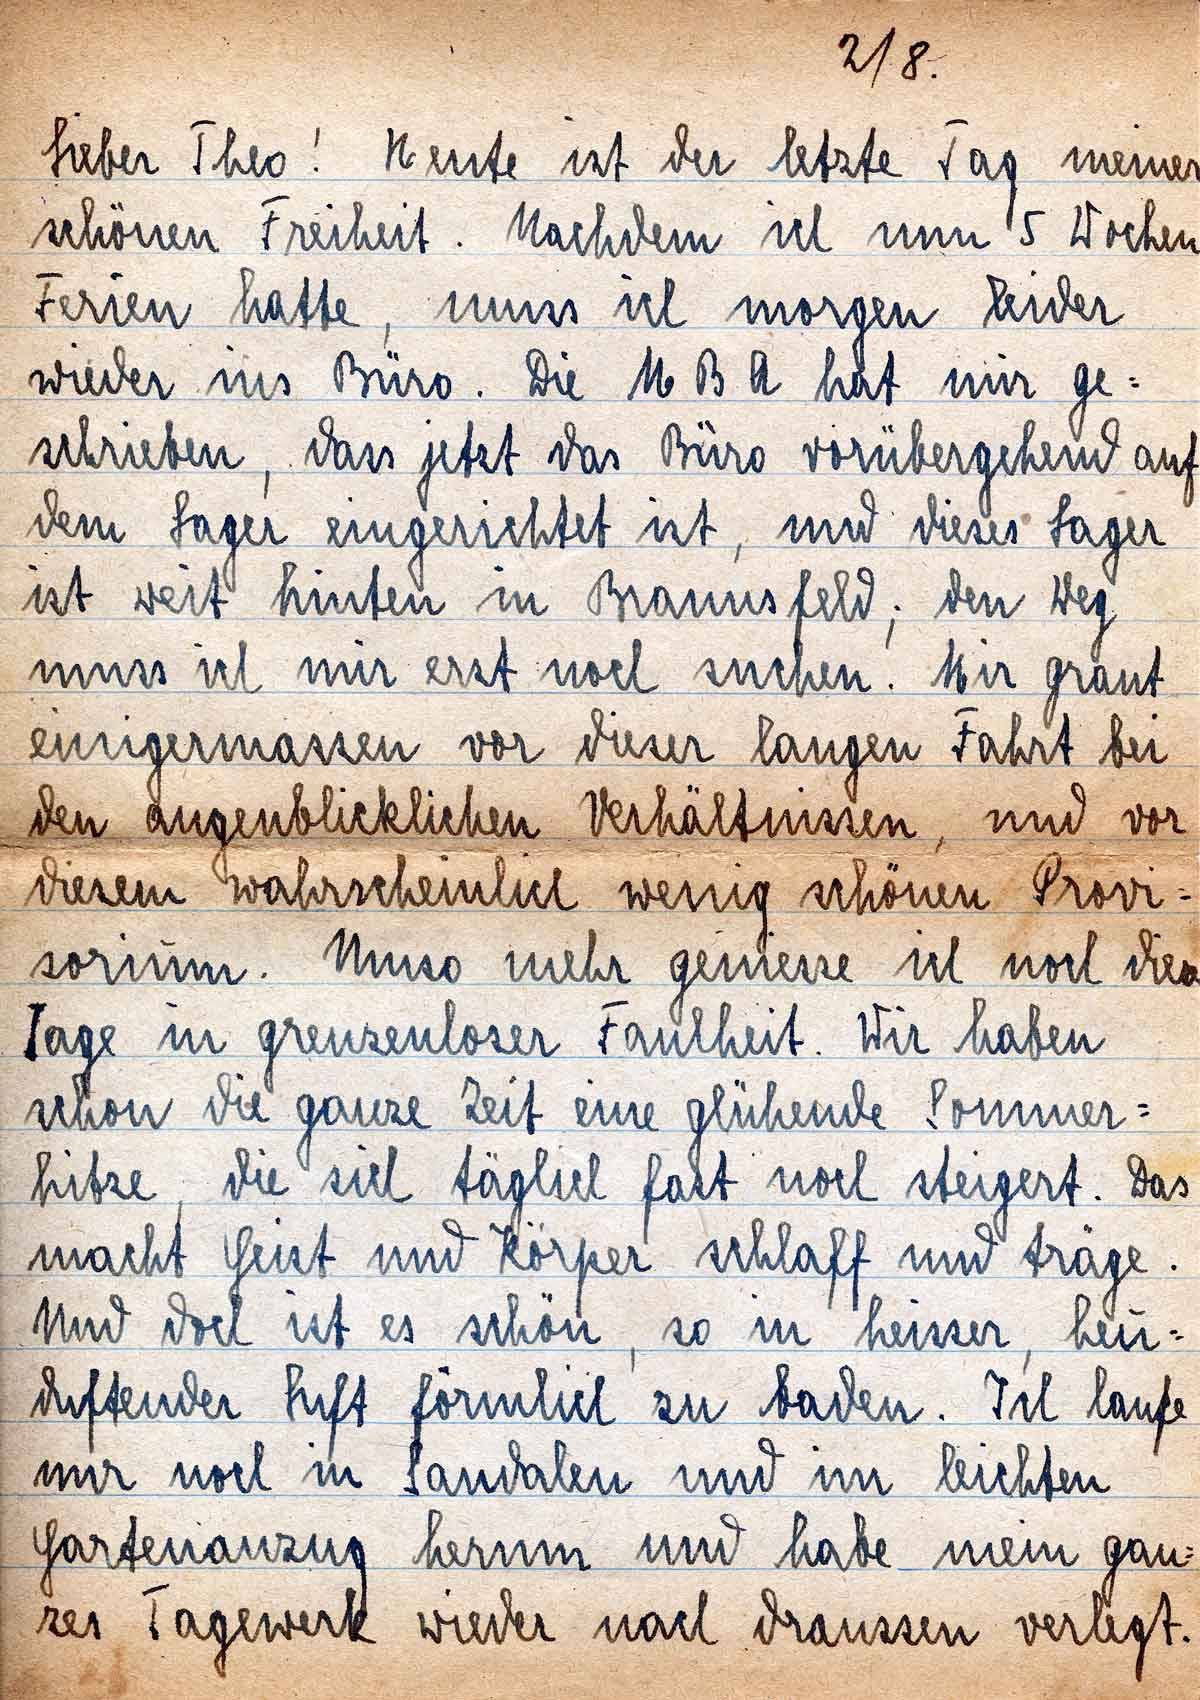 2/8.
Lieber Theo! Heute ist der letzte Tag meiner
schönen Freiheit. Nachdem ich nun 5 Wochen
Ferien hatte, muss ich morgen leider
wieder ins Büro. Die MBA hat mir ge=
schrieben, dass jetzt das Büro vorübergehend auf
dem Lager eingerichtet ist, und dieses Lager
ist weit hinten in Braunsfeld; den Weg
muss ich mir erst noch suchen. Mir graut
einigermassen vor dieser langen Fahrt bei
den augenblicklichen Verhältnissen, und vor
diesem wahrscheinlich wenig schönen Provi=
sorium. Umso mehr geniesse ich noch diese
Tage in grenzenloser Faulheit. Wir haben
schon die ganze Zeit eine glühende Sommer=
hitze, die sich täglich fast noch steigert. Das
macht Geist und Körper schlaff und träge.
Und doch ist es schön, so in heisser, heu=
duftender Luft förmlich zu baden. Ich laufe
nur noch in Sandalen und im leichten
Gartenanzug herum und habe mein gan=
zes Tagewerk wieder nach draussen verlegt.